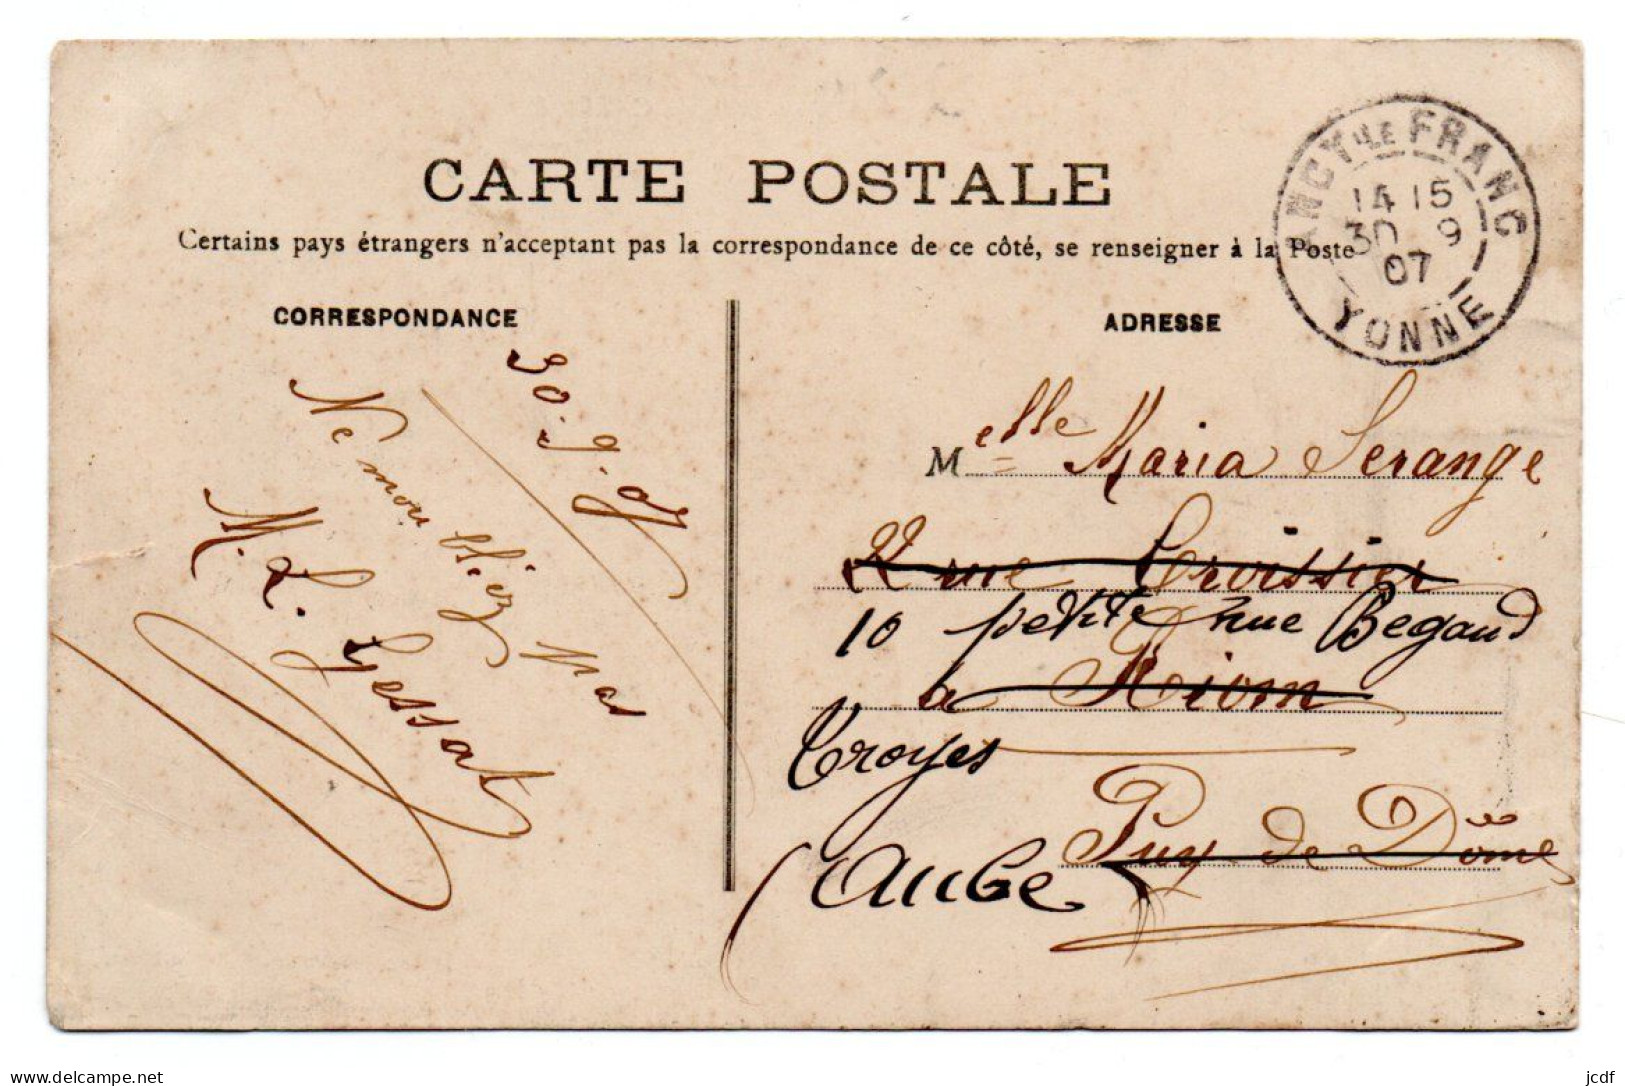 CARTE POSTALE
Certains pays étrangers n'acceptant pas la correspondance de ce côté, se renseigner à la Poste
ANCY-LE-FRANC
14 15
30 9
07
YONNE
CORRESPONDANCE
30.9.07
Ne m'oubliez pas
M. L. Gessat
ADRESSE
Melle Maria Serange
22 rue Croissier
10 petite rue Begand
à Riom
Troyes
Puy de Dôme
(Aube)
www.delcampe.net
jcdf